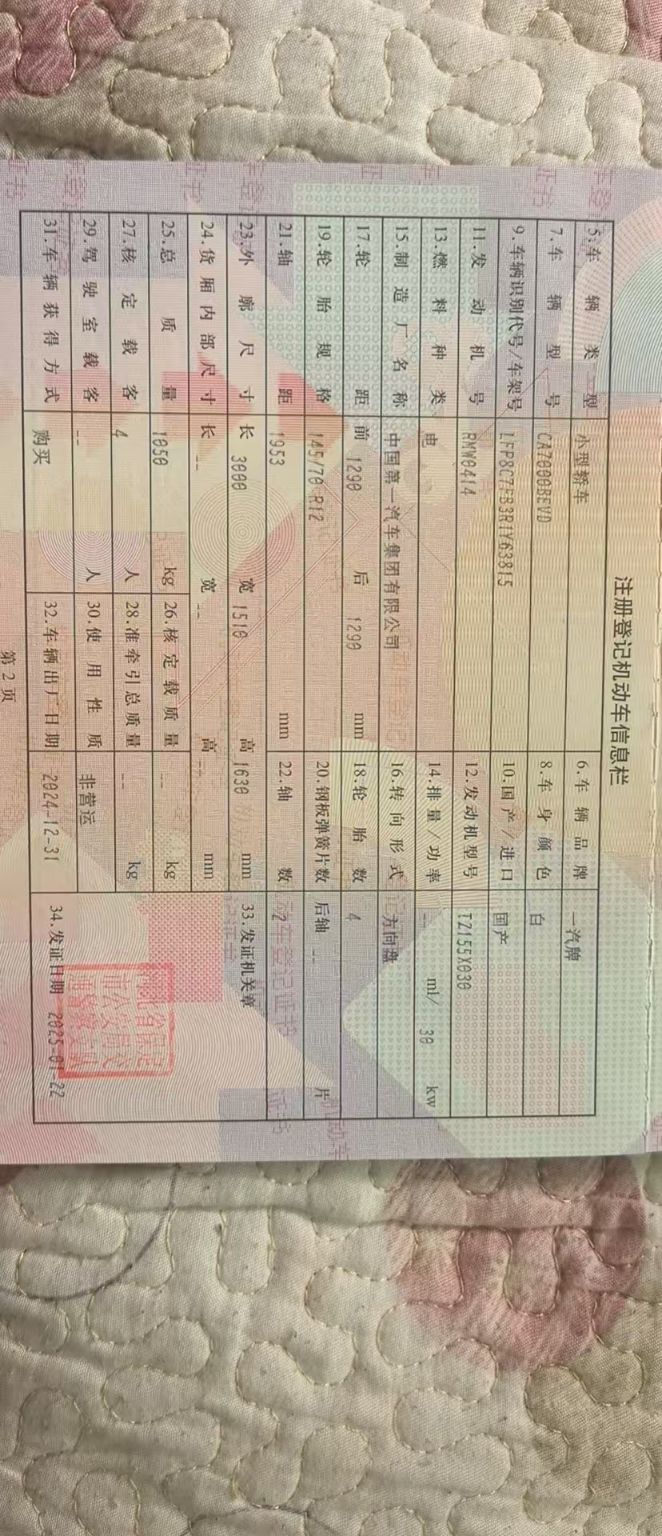 注册登记机动车信息栏
5.车辆类型 小型轿车 6.车辆品牌 一汽牌
7.车辆型号 CA7000BEVD 8.车身颜色 白
9.车辆识别代号/车架号 LFP8C7EB3R1Y63815 10.国产/进口 国产
11.发动机号 RMW0414 12.发动机型号 TZ155X030
13.燃料种类 电 14.排量/功率 -- ml/ 30 kw
15.制造厂名称 中国第一汽车集团有限公司 16.转向形式 方向盘
17.轮距 前 1290 后 1290 mm 18.轮胎数 4
19.轮胎规格 145/70 R12 20.钢板弹簧片数 后轴 -- 片
21.轴距 1953 mm 22.轴数 2
23.外廓尺寸 长 3000 宽 1510 高 1630 mm 33.发证机关章
24.货厢内部尺寸 长 -- 宽 -- 高 -- mm
25.总质量 1050 kg 26.核定载质量 -- kg
27.核定载客 4 人 28.准牵引总质量 -- kg
29.驾驶室载客 -- 人 30.使用性质 非营运
31.车辆获得方式 购买 32.车辆出厂日期 2024-12-31 34.发证日期 2025-01-22
第 2 页